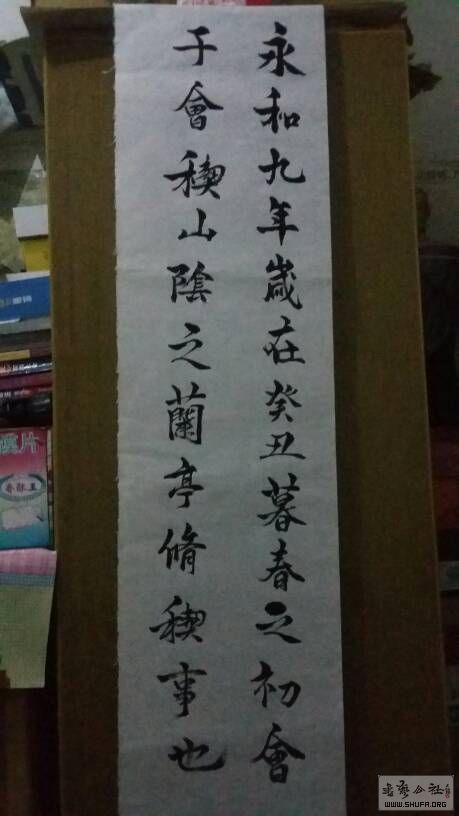 永和九年歲在癸丑暮春之初會
于會稧山陰之蘭亭脩稧事也
片
WWW.SHUFA.ORG